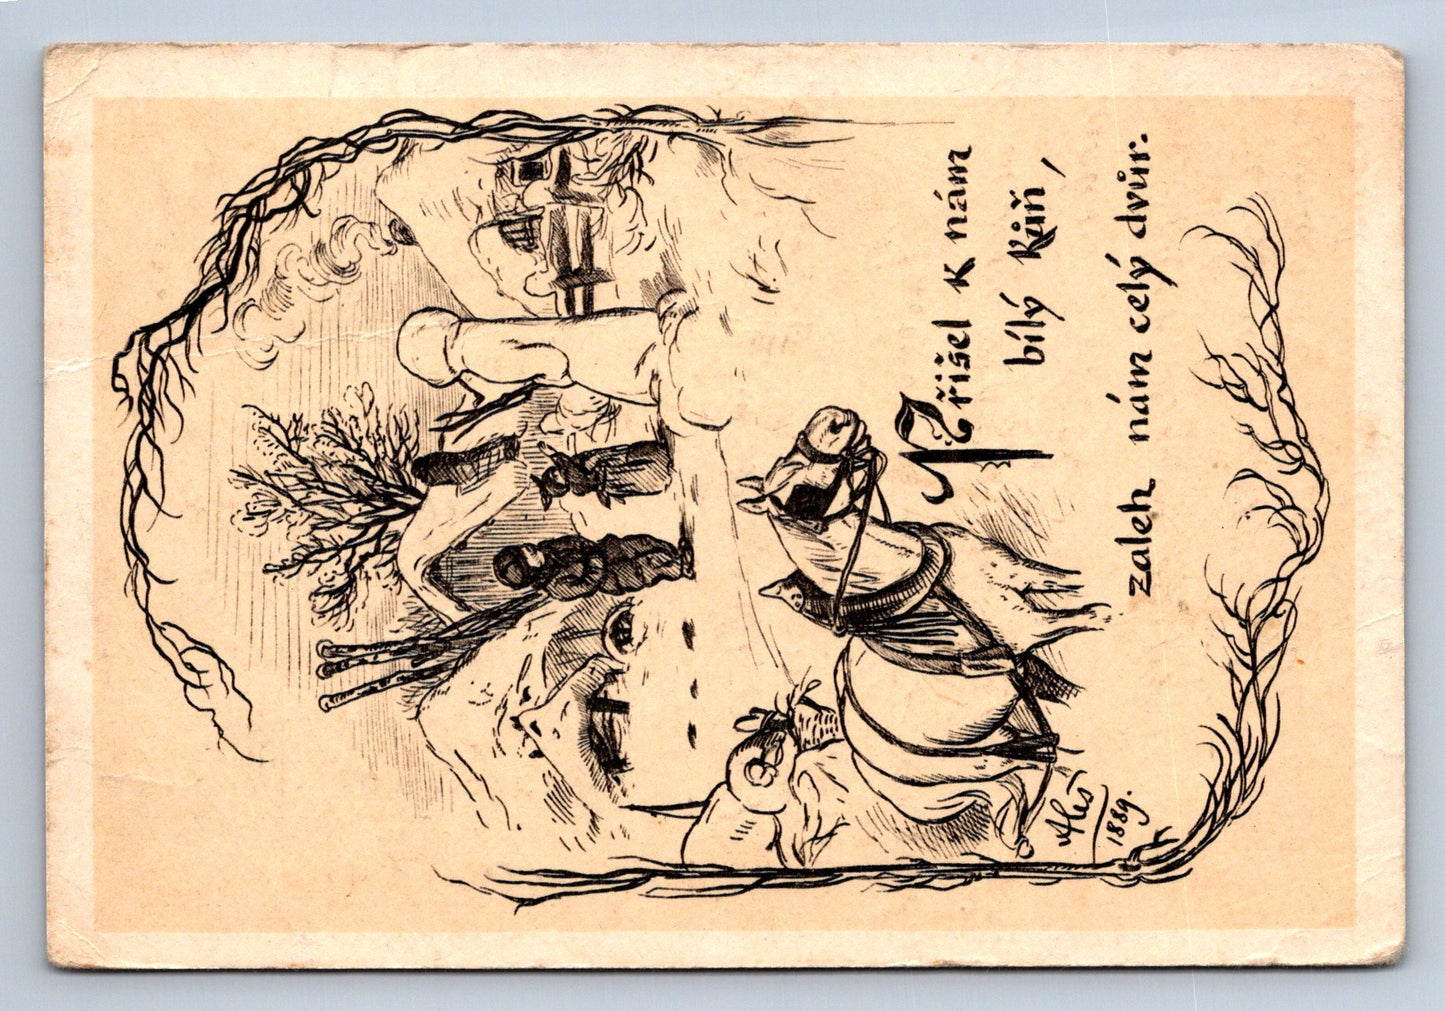 Přišel k nám
bílý kůň,
zaleh nám celý dvůr.
Aleš
1889.